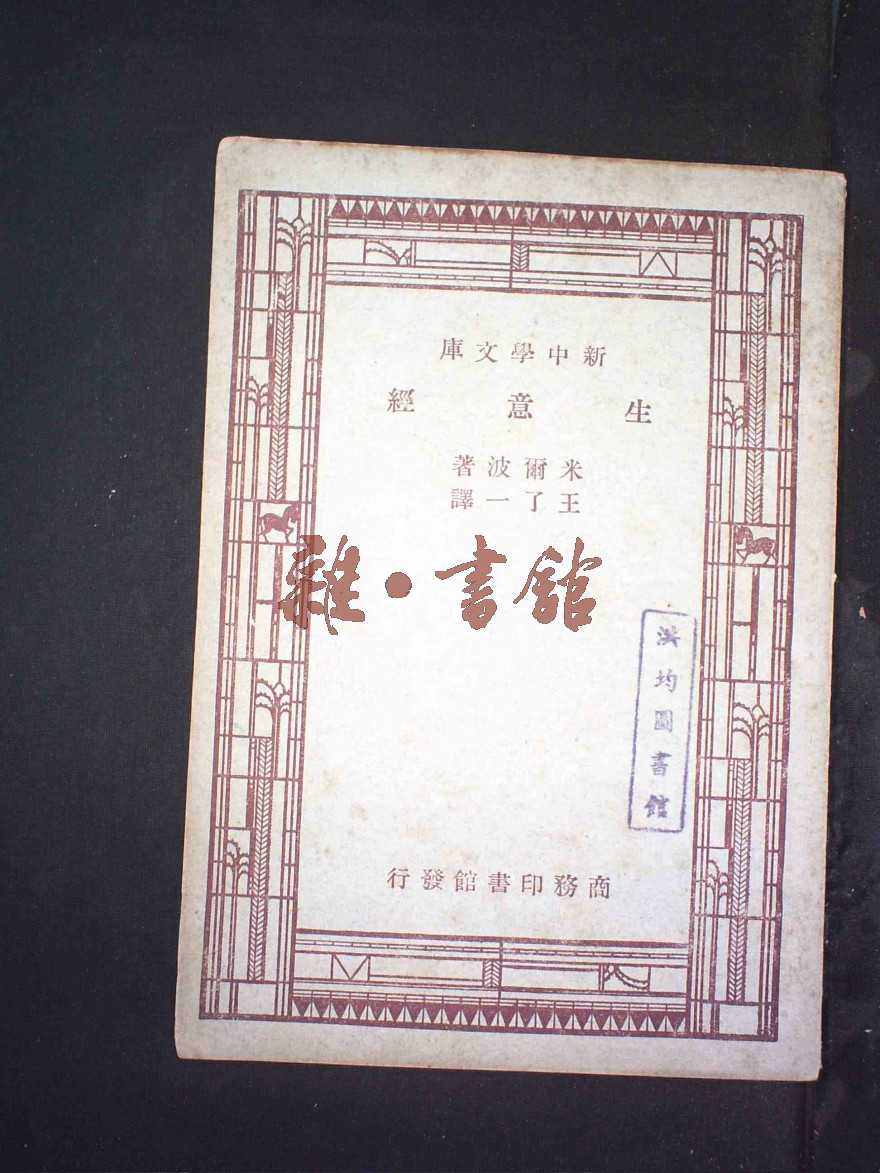 新中學文庫
生意經
米爾波著
王了一譯
雜·書館
洪均圖書館
商務印書館發行